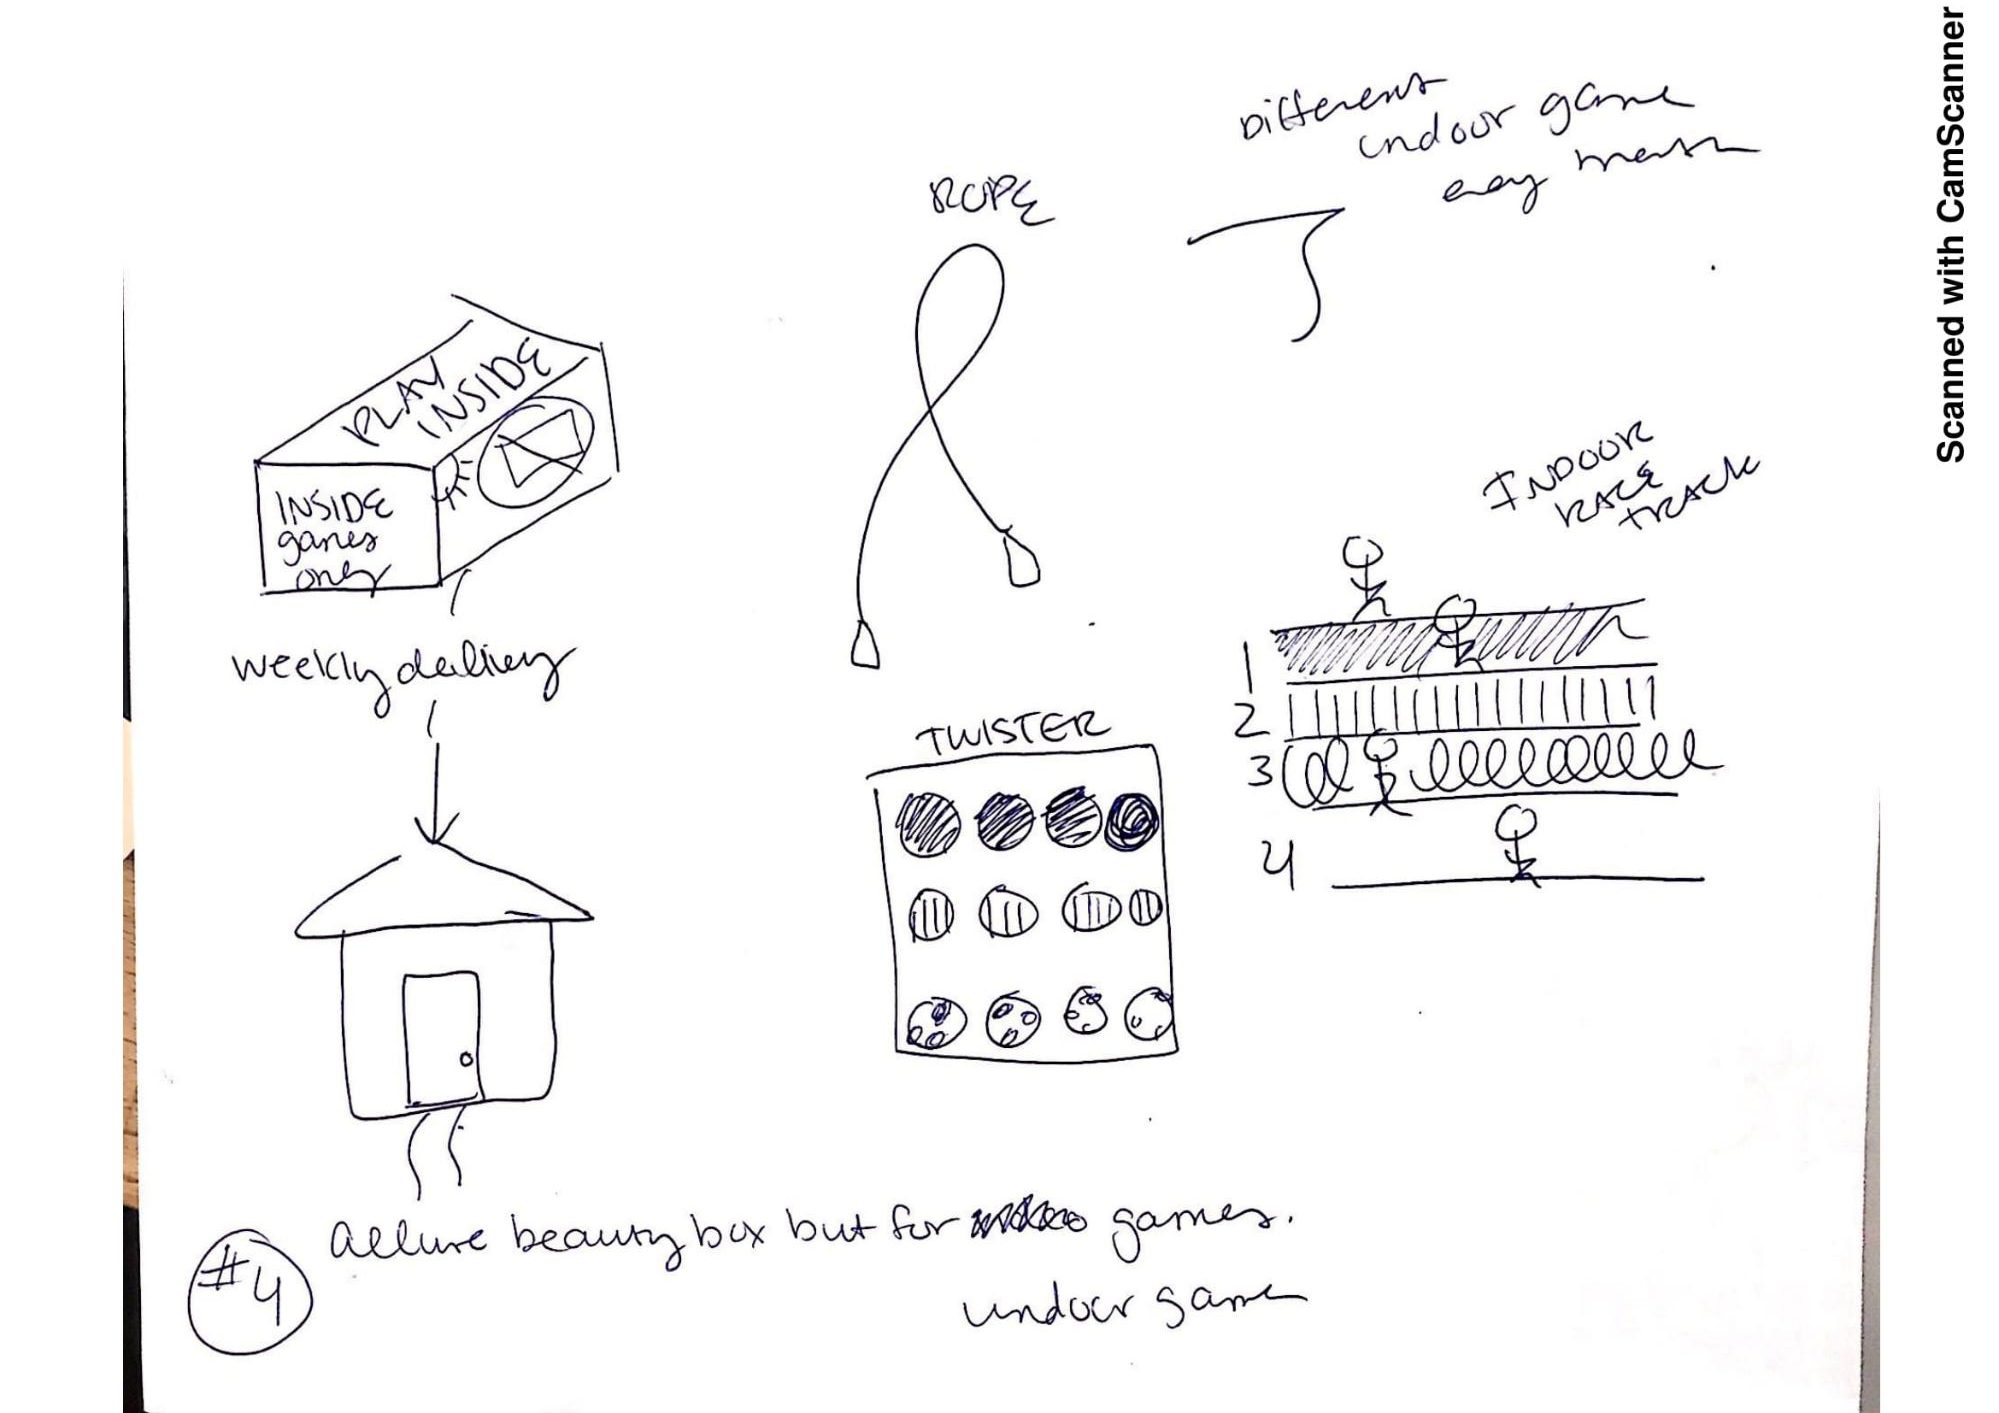 Different
indoor game
every month
ROPE
PLAY
INSIDE
INSIDE
games
only
weekly delivery
INDOOR
RACE
TRACK
1
2
3
4
TWISTER
#4
Allure beauty box but for games.
indoor game
Scanned with CamScanner